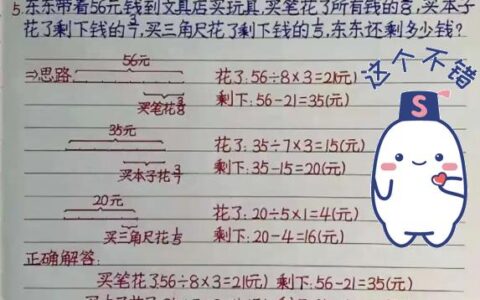 5.东东带着56元钱到文具店买玩具,买笔花了所有钱的3/8,买本子
花了剩下钱的3/7,买三角尺花了剩下钱的1/5,东东还剩多少钱?
这个不错
S
56元
⇒思路
花了:56÷8×3=21(元)
买笔花3/8
剩下:56-21=35(元)
35元
花了:35÷7×3=15(元)
买本子花3/7
剩下:35-15=20(元)
20元
花了:20÷5×1=4(元)
买三角尺花1/5
剩下:20-4=16(元)
正确解答:
买笔花了56÷8×3=21(元) 剩下:56-21=35(元)